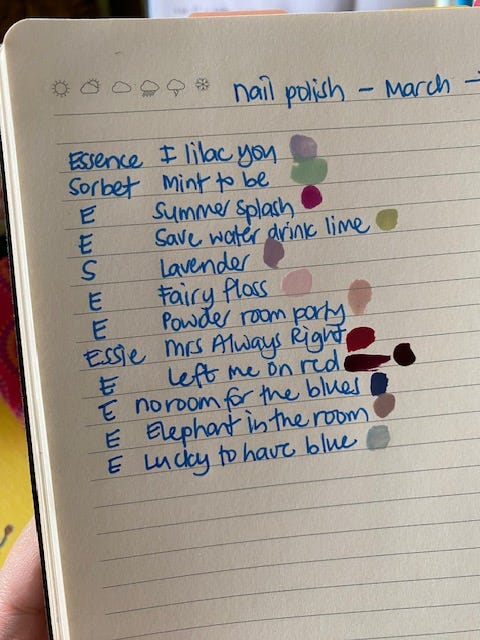 nail polish - March -
Essence I lilac you
Sorbet Mint to be
E Summer splash
E Save water drink lime
S Lavender
E Fairy floss
E Powder room party
Essie Mrs Always Right
E Left me on red
E no room for the blues
E Elephant in the room
E Lucky to have blue